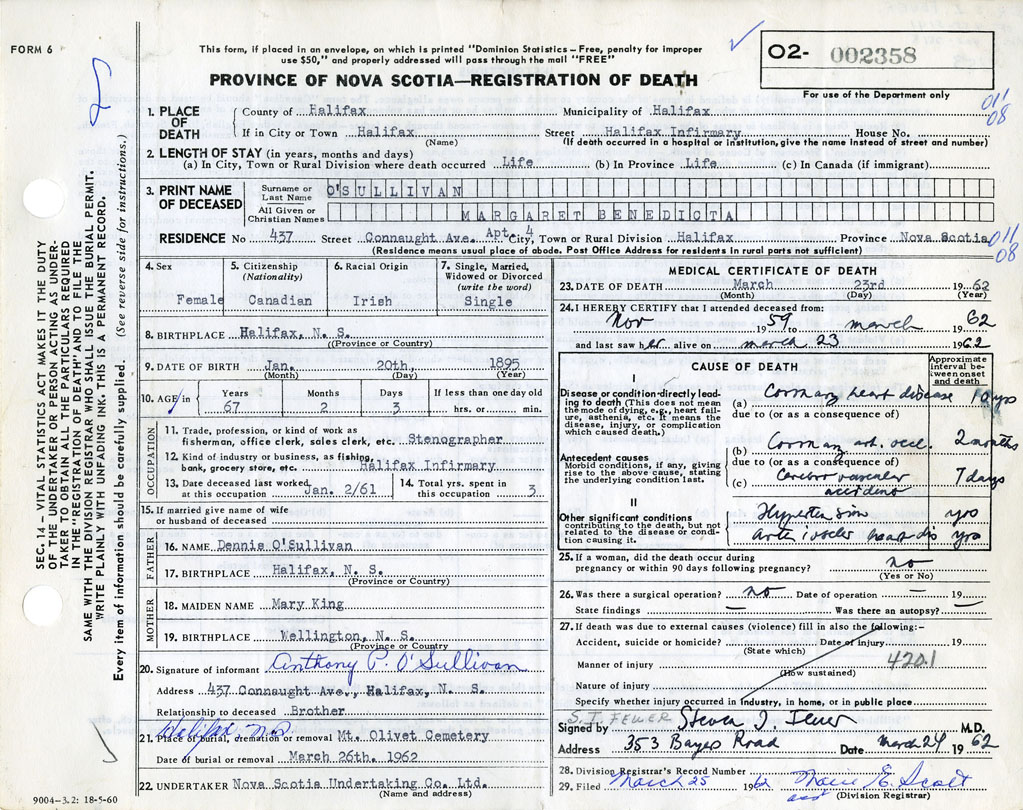 FORM 6
This form, if placed in an envelope, on which is printed "Dominion Statistics – Free, penalty for improper
use $50," and properly addressed will pass through the mail "FREE"
PROVINCE OF NOVA SCOTIA—REGISTRATION OF DEATH
O2- 002358
For use of the Department only
011
08
SEC. 14 – VITAL STATISTICS ACT MAKES IT THE DUTY
OF THE UNDERTAKER OR PERSON ACTING AS UNDER-
TAKER TO OBTAIN ALL THE PARTICULARS REQUIRED
IN THE "REGISTRATION OF DEATH" AND TO FILE THE
SAME WITH THE DIVISION REGISTRAR WHO SHALL ISSUE THE BURIAL PERMIT.
WRITE PLAINLY WITH UNFADING INK. THIS IS A PERMANENT RECORD.
Every item of information should be carefully supplied. (See reverse side for instructions.)
1. PLACE OF DEATH County of Halifax Municipality of Halifax
If in City or Town Halifax Street Halifax Infirmary House No.
(Name) (If death occurred in a hospital or institution, give the name instead of street and number)
2. LENGTH OF STAY (in years, months and days)
(a) In City, Town or Rural Division where death occurred Life (b) In Province Life (c) In Canada (if immigrant)
3. PRINT NAME OF DECEASED Surname or Last Name O'SULLIVAN
All Given or Christian Names MARGARET BENEDICTA
RESIDENCE No 437 Street Connaught Ave. Apt. 4 City, Town or Rural Division Halifax Province Nova Scotia
011
08
(Residence means usual place of abode. Post Office Address for residents in rural parts not sufficient)
4. Sex Female
5. Citizenship (Nationality) Canadian
6. Racial Origin Irish
7. Single, Married, Widowed or Divorced (write the word) Single
8. BIRTHPLACE Halifax, N. S.
(Province or Country)
9. DATE OF BIRTH Jan. 20th, 1895
(Month) (Day) (Year)
10. AGE in Years 67 Months 2 Days 3 If less than one day old hrs. or min.
OCCUPATION
11. Trade, profession, or kind of work as
fisherman, office clerk, sales clerk, etc. Stenographer
12. Kind of industry or business, as fishing,
bank, grocery store, etc. Halifax Infirmary
13. Date deceased last worked at this occupation Jan. 2/61
14. Total yrs. spent in this occupation 3
15. If married give name of wife
or husband of deceased
FATHER
16. NAME Dennis O'Sullivan
17. BIRTHPLACE Halifax, N. S.
(Province or Country)
MOTHER
18. MAIDEN NAME Mary King
19. BIRTHPLACE Wellington, N. S.
(Province or Country
20. Signature of informant Anthony P. O'Sullivan
Address 437 Connaught Ave., Halifax, N. S.
Relationship to deceased Brother
Halifax N.S.
21. Place of burial, cremation or removal Mt. Olivet Cemetery
Date of burial or removal March 26th. 1962
22. UNDERTAKER Nova Scotia Undertaking Co. Ltd.
(Name and address)
9004–3.2: 18-5-60
MEDICAL CERTIFICATE OF DEATH
23. DATE OF DEATH March 23rd 1962
(Month) (Day) (Year)
24. I HEREBY CERTIFY that I attended deceased from:
Nov 1957 to march 1962
and last saw her alive on march 23 1962
CAUSE OF DEATH
Approximate interval between onset and death
I
Disease or condition directly leading to death (This does not mean the mode of dying, e.g., heart failure, asthenia, etc. It means the disease, injury, or complication which caused death.)
(a) Coronary heart disease 10 yrs
due to (or as a consequence of)
(b) Coronary art. occl. 2 months
Antecedent causes
Morbid conditions, if any, giving rise to the above cause, stating the underlying condition last.
due to (or as a consequence of)
(c) Cerebro vascular accident 7 days
II
Other significant conditions
contributing to the death, but not related to the disease or condition causing it.
Hypertension yrs
Arterioscler heart dis yrs
25. If a woman, did the death occur during
pregnancy or within 90 days following pregnancy? no
(Yes or No)
26. Was there a surgical operation? no Date of operation — 19
State findings — Was there an autopsy? —
27. If death was due to external causes (violence) fill in also the following:-
Accident, suicide or homicide? Date of injury 19
(State which)
Manner of injury 420.1
(How sustained)
Nature of injury
Specify whether injury occurred in industry, in home, or in public place
S. I. FEWER
Signed by Steven I Fewer M.D.
Address 353 Bayers Road Date march 24 1962
28. Division Registrar's Record Number
29. Filed March 25 1962 Marie E. Scott
(Division Registrar)